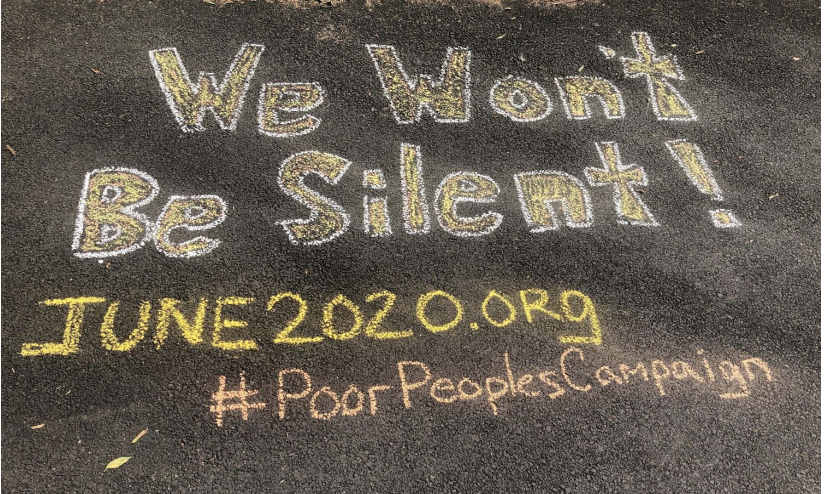 We Won't
Be Silent!
JUNE2020.ORg
#PoorPeoplesCampaign